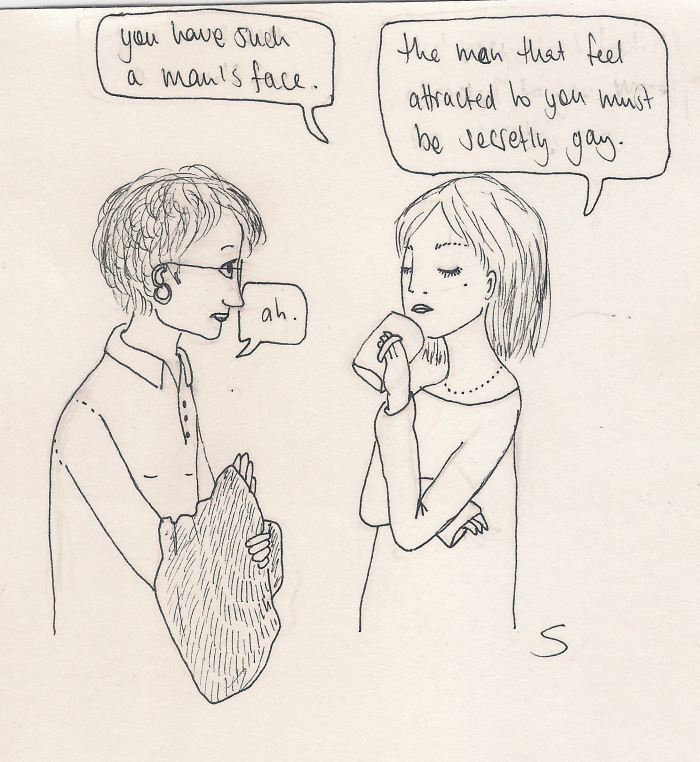 you have such
a man's face.
the man that feel
attracted to you must
be secretly gay.
ah.
S